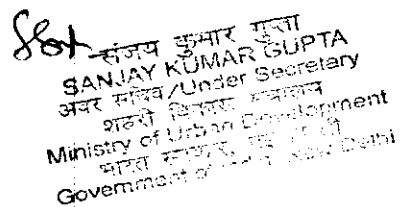 संजय कुमार गुप्ता
SANJAY KUMAR GUPTA
अवर सचिव/Under Secretary
शहरी विकास मंत्रालय
Ministry of Urban Development
भारत सरकार, नई दिल्ली
Government of New Delhi